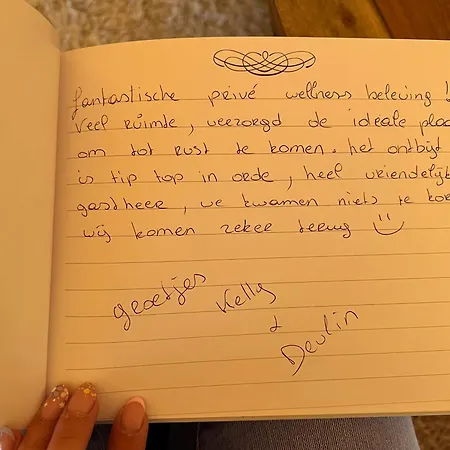 fantastische privé wellness beleving!
Veel ruimte, verzorgd de ideale plaa
om tot rust te komen. het ontbijt
is tip top in orde, heel vriendelijk
gastheer, we kwamen niets te kor
wij komen zeker terug
groetjes
Kelly
&
Devlin